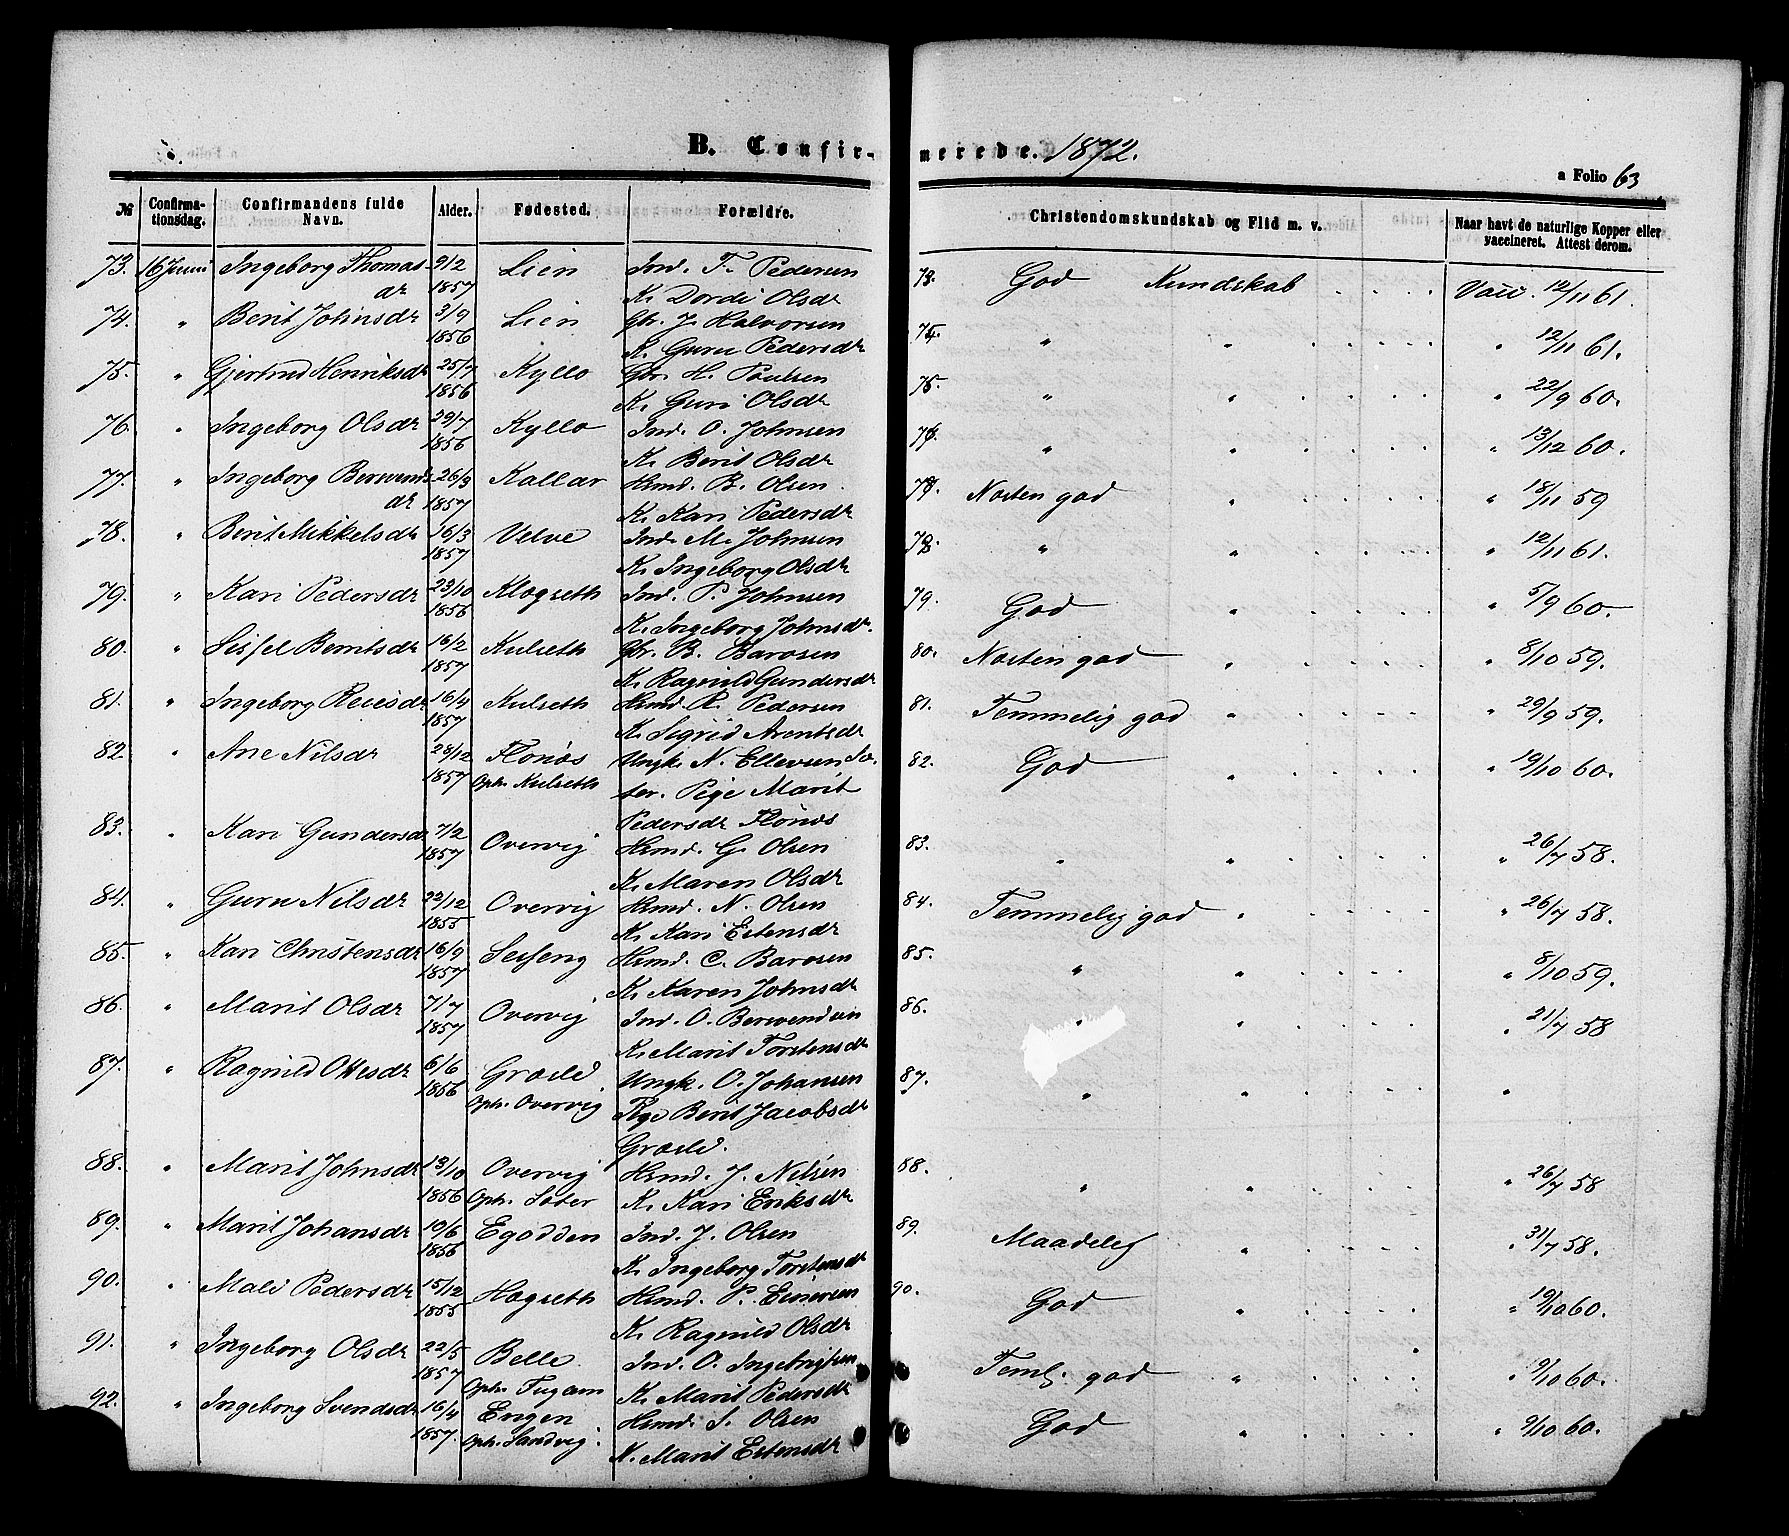 B. Confirmerede. 1872.
a Folio 63
№ Confirmationsdag. Confirmandens fulde Navn. Alder. Fødested. Forældre. Christendomskundskab og Flid m. v. Naar havt de naturlige Kopper eller vaccineret. Attest derom.
73. 16 Juni Ingeborg Thomasdr 9/2 1857 Lien Ind. T. Pedersen K. Dordi Olsdr 73. God Kundskab Vacc. 12/11 61.
74. " Berit Johnsdr 3/9 1856 Lien Gbr. J. Halvorsen K. Guru Pedersdr 74. " " " 12/11 61.
75. " Gjertrud Henriksdr 25/7 1856 Kyllo Gbr. H. Paulsen K. Guri Olsdr 75. " " " 22/9 60.
76. " Ingeborg Olsdr 29/7 1856 Kyllo Ind. O. Johnsen K. Berit Olsdr 76. " " " 13/12 60.
77. " Ingeborg Berwendsdr 26/3 1857 Kallar Hsmd. B. Olsen K. Kari Pedersdr 77. Næsten god " " 18/11 59
78. " Berit Mikkelsdr 16/3 1857 Velve Ind. M. Johnsen K. Ingeborg Olsdr 78. " " " 12/11 61.
79. " Kari Pedersdr 23/10 1856 Klogseth Ind. P. Johnsen K. Ingeborg Johnsdr. 79. God " " 5/9 60.
80. " Sissel Berntsdr 16/2 1857 Kulseth Gbr. B. Barosen K. Ragnild Gundersdr 80. Næsten god " " 8/10 59.
81. " Ingeborg Reiesdr 16/4 1857 Kulseth Hsmd. R. Pedersen K. Sigrid Arentsdr 81. Temmelig god " " 29/9 59.
82. " Ane Nilsdr 28/12 1857 Flonæs Oph. Kulseth Ungk. N. Ellevsen Sæter. Pige Marit Pedersdr Flonæs 82. God " " 19/10 60.
83. " Kari Gundersdr 7/2 1857 Overvig Hsmd. G. Olsen K. Maren Olsdr 83. " " " 26/7 58.
84. " Guru Nilsdr 22/12 1855 Overvig Hsmd. N. Olsen K. Kari Estensdr 84. Temmelig god " " 26/7 58.
85. " Kari Christensdr 16/9 1857 Hsmd. C. Barosen K. Karen Johnsdr 85. " " " 8/10 59.
86. " Marit Olsdr 7/7 1857 Overvig Ind. O. Berwendsen K. Marit Torstensdr 86. " " " 21/7 58
87. " Ragnild Ottesdr 6/6 1856 Græsld Oph. Overvig Ungk. O. Johansen Pige Berit Jacobsdr 87. " " "
88. " Marit Johnsdr 13/10 1856 Overvig Oph. Sæter Hsmd. J. Nilsen K. Kari Eriksdr 88. " " " 26/7 58
89. " Marit Johansdr 10/6 1856 Egodden Ind. J. Olsen K. Ingeborg Torstensdr 89. Maadelig " " 31/7 58.
90. " Mali Pedersdr 15/12 1855 Hogseth Hsmd. P. Einersen K. Ragnild Olsdr 90. God " " 19/10 60.
91. " Ingeborg Olsdr 22/5 1857 Belle. Oph. Fugam Ind. O. Ingebrigtsen K. Marit Pedersdr Teml. god " " 9/10 60.
92. " Ingeborg Svendsdr 16/4 1857. Engen Oph. Sandvig. Hsmd. S. Olsen K. Marit Estensdr God " " 9/10 60.